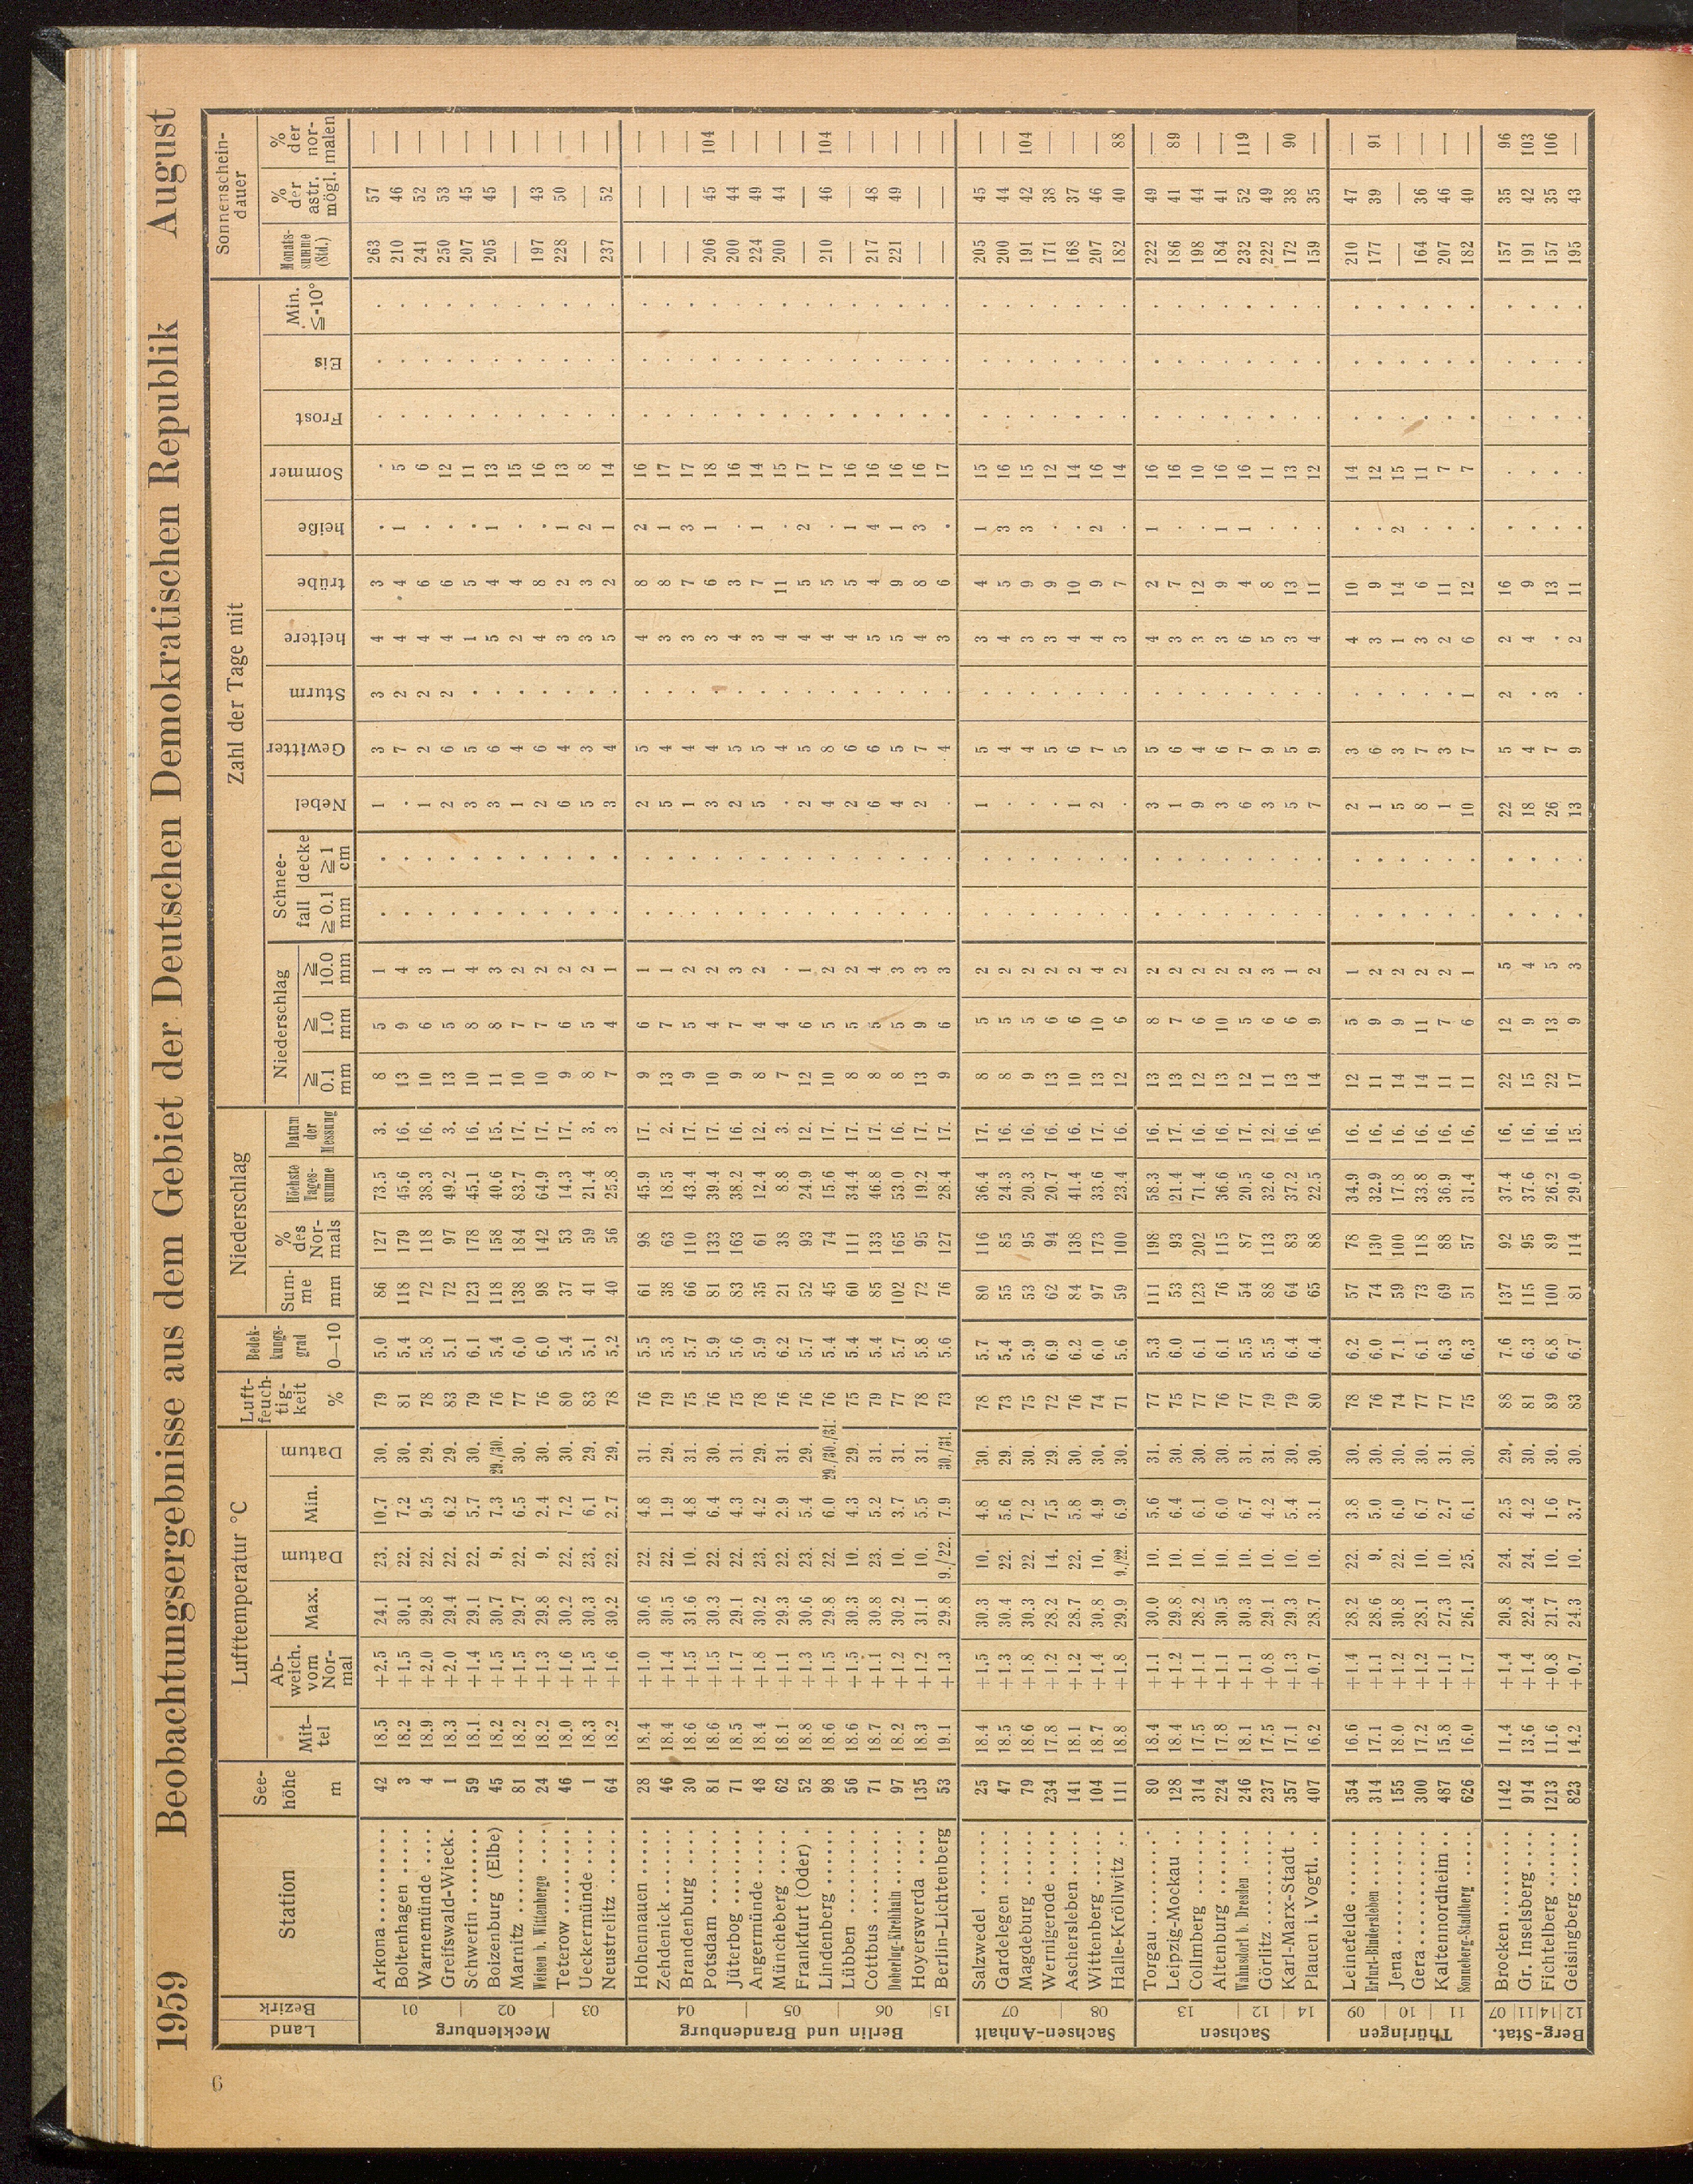 6
1959 Beobachtungsergebnisse aus dem Gebiet der Deutschen Demokratischen Republik August
Land Bezirk Station See-höhe m Lufttemperatur °C Mit-tel Ab-weich. vom Nor-mal Max. Datum Min. Datum Luft-feuch-tig-keit % Bedek-kungs-grad 0—10 Niederschlag Sum-me mm % des Nor-mals Höchste Tages-summe Datum der Messung Zahl der Tage mit Niederschlag ≧ 0.1 mm ≧ 1.0 mm ≧ 10.0 mm Schnee- fall ≧ 0.1 mm decke ≧ 1 cm Nebel Gewitter Sturm heitere trübe heiße Sommer Frost Eis Min. ≦-10° Sonnenschein-dauer Monats-summe (Std.) % der astr. mögl. % der nor-malen
Mecklenburg 01 02 03
Arkona 42 18.5 +2.5 24.1 23. 10.7 30. 79 5.0 86 127 73.5 3. 8 5 1 . . 1 3 3 4 3 . . . . . 263 57 —
Boltenhagen 3 18.2 +1.5 30.1 22. 7.2 30. 81 5.4 118 179 45.6 16. 13 9 4 . . . 7 2 4 4 1 5 . . . 210 46 —
Warnemünde 4 18.9 +2.0 29.8 22. 9.5 29. 78 5.8 72 118 38.3 16. 10 6 3 . . 1 2 2 4 6 . 6 . . . 241 52 —
Greifswald-Wieck 1 18.3 +2.0 29.4 22. 6.2 29. 83 5.1 72 97 49.2 3. 13 5 1 . . 2 6 2 4 6 . 12 . . . 250 53 —
Schwerin 59 18.1 +1.4 29.1 22. 5.7 30. 79 6.1 123 178 45.1 16. 10 8 4 . . 3 5 . 1 5 . 11 . . . 207 45 —
Boizenburg (Elbe) 45 18.2 +1.5 30.7 9. 7.3 29./30. 76 5.4 118 158 40.6 15. 11 8 3 . . 3 6 . 5 4 1 13 . . . 205 45 —
Marnitz 81 18.2 +1.5 29.7 22. 6.5 30. 77 6.0 138 184 83.7 17. 10 7 2 . . 1 4 . 2 4 . 15 . . . — — —
Weisen b. Wittenberge 24 18.2 +1.3 29.8 9. 2.4 30. 76 6.0 98 142 64.9 17. 10 7 2 . . 2 6 . 4 8 . 16 . . . 197 43 —
Teterow 46 18.0 +1.6 30.2 22. 7.2 30. 80 5.4 37 53 14.3 17. 9 6 2 . . 6 4 . 3 2 1 13 . . . 228 50 —
Ueckermünde 1 18.3 +1.5 30.3 23. 6.1 29. 83 5.1 41 59 21.4 3. 8 5 2 . . 5 3 . 3 3 2 8 . . . — — —
Neustrelitz 64 18.2 +1.6 30.2 22. 2.7 29. 78 5.2 40 56 25.8 3. 7 4 1 . . 3 4 . 5 2 1 14 . . . 237 52 —
Berlin und Brandenburg 04 05 06 15
Hohennauen 28 18.4 +1.0 30.6 22. 4.8 31. 76 5.5 61 98 45.9 17. 9 6 1 . . 2 5 . 4 8 2 16 . . . — — —
Zehdenick 46 18.4 +1.4 30.5 22. 1.9 29. 79 5.3 38 63 18.5 2. 13 7 1 . . 5 4 . 3 8 1 17 . . . — — —
Brandenburg 30 18.6 +1.5 31.6 10. 4.8 31. 75 5.7 66 110 43.4 17. 9 5 2 . . 1 4 . 3 7 3 17 . . . — — —
Potsdam 81 18.6 +1.5 30.3 22. 6.4 30. 76 5.9 81 133 39.4 17. 10 4 2 . . 3 4 . 3 6 1 18 . . . 206 45 104
Jüterbog 71 18.5 +1.7 29.1 22. 4.3 31. 75 5.6 83 163 38.2 16. 9 7 3 . . 2 5 . 4 3 . 16 . . . 200 44 —
Angermünde 48 18.4 +1.8 30.2 23. 4.2 29. 78 5.9 35 61 12.4 12. 8 4 2 . . 5 5 . 3 7 1 14 . . . 224 49 —
Müncheberg 62 18.1 +1.1 29.3 22. 2.9 31. 76 6.2 21 38 8.8 3. 7 4 . . . . 4 . 4 11 . 15 . . . 200 44 —
Frankfurt (Oder) 52 18.8 +1.3 30.6 23. 5.4 29. 76 5.7 52 93 24.9 12. 12 6 1 . . 2 5 . 4 5 2 17 . . . — — —
Lindenberg 98 18.6 +1.5 29.8 22. 6.0 29./30./31. 76 5.4 45 74 15.6 17. 10 5 2 . . 4 8 . 4 5 . 17 . . . 210 46 104
Lübben 56 18.6 +1.5 30.3 10. 4.3 29. 75 5.4 60 111 34.4 17. 8 5 2 . . 2 6 . 4 5 1 16 . . . — — —
Cottbus 71 18.7 +1.1 30.8 23. 5.2 31. 79 5.4 85 133 46.8 17. 8 5 4 . . 6 6 . 5 4 4 16 . . . 217 48 —
Doberlug-Kirchhain 97 18.2 +1.2 30.2 10. 3.7 31. 77 5.7 102 165 53.0 16. 8 5 3 . . 4 5 . 5 9 1 16 . . . 221 49 —
Hoyerswerda 135 18.3 +1.2 31.1 10. 5.5 31. 78 5.8 72 95 19.2 17. 13 9 3 . . 2 7 . 4 8 3 16 . . . — — —
Berlin-Lichtenberg 53 19.1 +1.3 29.8 9./22. 7.9 30./31. 73 5.6 76 127 28.4 17. 9 6 3 . . . 4 . 3 6 . 17 . . . — — —
Sachsen-Anhalt 07 08
Salzwedel 25 18.4 +1.5 30.3 10. 4.8 30. 78 5.7 80 116 36.4 17. 8 5 2 . . 1 5 . 3 4 1 15 . . . 205 45 —
Gardelegen 47 18.5 +1.3 30.4 22. 5.6 29. 73 5.4 55 85 24.3 16. 8 5 2 . . . 4 . 4 5 3 16 . . . 200 44 —
Magdeburg 79 18.6 +1.8 30.3 22. 7.2 30. 75 5.9 53 95 20.3 16. 9 5 2 . . . 4 . 3 9 3 15 . . . 191 42 104
Wernigerode 234 17.8 +1.2 28.2 14. 7.5 29. 72 6.9 62 94 20.7 16. 13 6 2 . . . 5 . 3 9 . 12 . . . 171 38 —
Aschersleben 141 18.1 +1.2 28.7 22. 5.8 30. 76 6.2 84 138 41.4 16. 10 6 2 . . 1 6 . 4 10 . 14 . . . 168 37 —
Wittenberg 104 18.7 +1.4 30.8 10. 4.9 30. 74 6.0 97 173 33.6 17. 13 10 4 . . 2 7 . 4 9 2 16 . . . 207 46 —
Halle-Kröllwitz 111 18.8 +1.8 29.9 9./22. 6.9 30. 71 5.6 59 100 23.4 16. 12 6 2 . . . 5 . 3 7 . 14 . . . 182 40 88
Sachsen 13 12 14
Torgau 80 18.4 +1.1 30.0 10. 5.6 31. 77 5.3 111 198 58.3 16. 13 8 2 . . 3 5 . 4 2 1 16 . . . 222 49 —
Leipzig-Mockau 128 18.4 +1.2 29.8 10. 6.4 30. 75 6.0 53 93 21.4 17. 13 7 2 . . 1 6 . 3 7 . 16 . . . 186 41 89
Collmberg 314 17.5 +1.1 28.2 10. 6.1 30. 77 6.1 123 202 71.4 16. 12 6 2 . . 9 4 . 3 12 . 10 . . . 198 44 —
Altenburg 224 17.8 +1.1 30.5 10. 6.0 30. 76 6.1 76 115 36.6 16. 13 10 2 . . 3 6 . 3 9 1 16 . . . 184 41 —
Wahnsdorf b. Dresden 246 18.1 +1.1 30.3 10. 6.7 31. 77 5.5 54 87 20.5 17. 12 5 2 . . 6 7 . 6 4 1 16 . . . 232 52 119
Görlitz 237 17.5 +0.8 29.1 10. 4.2 31. 79 5.5 88 113 32.6 12. 11 6 3 . . 3 9 . 5 8 . 11 . . . 222 49 —
Karl-Marx-Stadt 357 17.1 +1.3 29.3 10. 5.4 30. 79 6.4 64 83 37.2 16. 13 6 1 . . 5 5 . 3 13 . 13 . . . 172 38 90
Plauen i. Vogtl. 407 16.2 +0.7 28.7 10. 3.1 30. 80 6.4 65 88 22.5 16. 14 9 2 . . 7 9 . 4 11 . 12 . . . 159 35 —
Thüringen 09 10 11
Leinefelde 354 16.6 +1.4 28.2 22. 3.8 30. 78 6.2 57 78 34.9 16. 12 5 1 . . 2 3 . 4 10 . 14 . . . 210 47 —
Erfurt-Bindersleben 314 17.1 +1.1 28.6 9. 5.0 30. 76 6.0 74 130 32.9 16. 11 9 2 . . 1 6 . 3 9 . 12 . . . 177 39 91
Jena 155 18.0 +1.2 30.8 22. 6.0 30. 74 7.1 59 100 17.8 16. 14 9 2 . . 5 3 . 1 14 2 15 . . . — — —
Gera 300 17.2 +1.2 28.1 10. 6.7 30. 77 6.1 73 118 33.8 16. 14 11 2 . . 8 7 . 3 6 . 11 . . . 164 36 —
Kaltennordheim 487 15.8 +1.1 27.3 10. 2.7 31. 77 6.3 69 88 36.9 16. 11 7 2 . . 1 3 . 2 11 . 7 . . . 207 46 —
Sonneberg-Stadtberg 626 16.0 +1.7 26.1 25. 6.1 30. 75 6.3 51 57 31.4 16. 11 6 1 . . 10 7 1 6 12 . 7 . . . 182 40 —
Berg-Stat. 07 11 14 12
Brocken 1142 11.4 +1.4 20.8 24. 2.5 29. 88 7.6 137 92 37.4 16. 22 12 5 . . 22 5 2 2 16 . . . . . 157 35 96
Gr. Inselsberg 914 13.6 +1.4 22.4 24. 4.2 30. 81 6.3 115 95 37.6 16. 15 9 4 . . 18 4 . 4 9 . . . . . 191 42 103
Fichtelberg 1213 11.6 +0.8 21.7 10. 1.6 30. 89 6.8 100 89 26.2 16. 22 13 5 . . 26 7 3 . 13 . . . . . 157 35 106
Geisingberg 823 14.2 +0.7 24.3 10. 3.7 30. 83 6.7 81 114 29.0 15. 17 9 3 . . 13 9 . 2 11 . . . . . 195 43 —